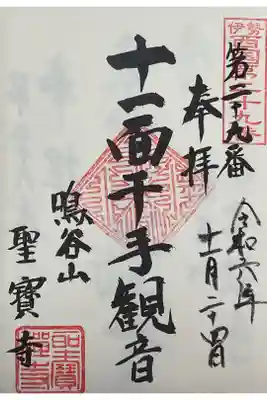 伊勢
西国第
二十九番
第二十九番
奉拝
令和六年
十一月二十四日
十一面千手観音
鳴谷山
聖寶寺
聖寶
禅寺